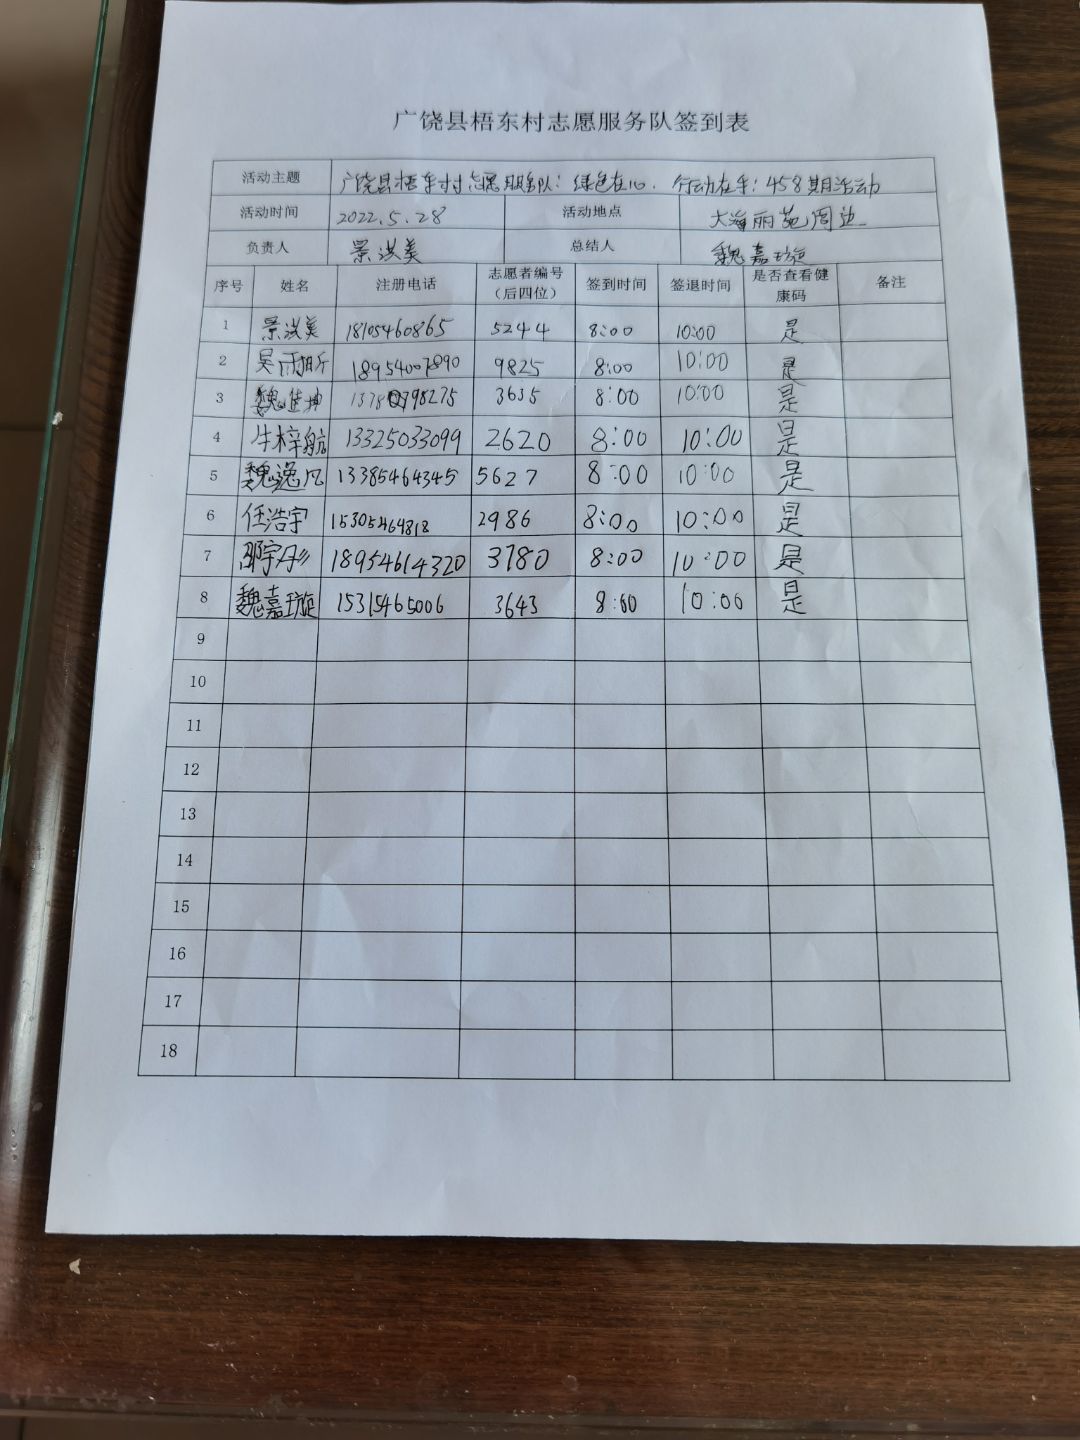 广饶县梧东村志愿服务队签到表
活动主题 广饶县梧东村志愿服务队:绿色在心、行动在手:458期活动
活动时间 2022.5.28 活动地点 大海丽苑周边
负责人 景洪美 总结人 魏嘉璇
序号 姓名 注册电话 志愿者编号（后四位） 签到时间 签退时间 是否查看健康码 备注
1 景洪美 18105460865 5244 8:00 10:00 是
2 吴雨昕 18954007890 9825 8:00 10:00 是
3 魏 3635 8:00 10:00 是
4 牛梓航 13325033099 2620 8:00 10:00 是
5 魏逸凡 13385464345 5627 8:00 10:00 是
6 任浩宇 15305464818 2986 8:00 10:00 是
7 18954614320 3780 8:00 10:00 是
8 魏嘉璇 15315465006 3643 8:00 10:00 是
9
10
11
12
13
14
15
16
17
18